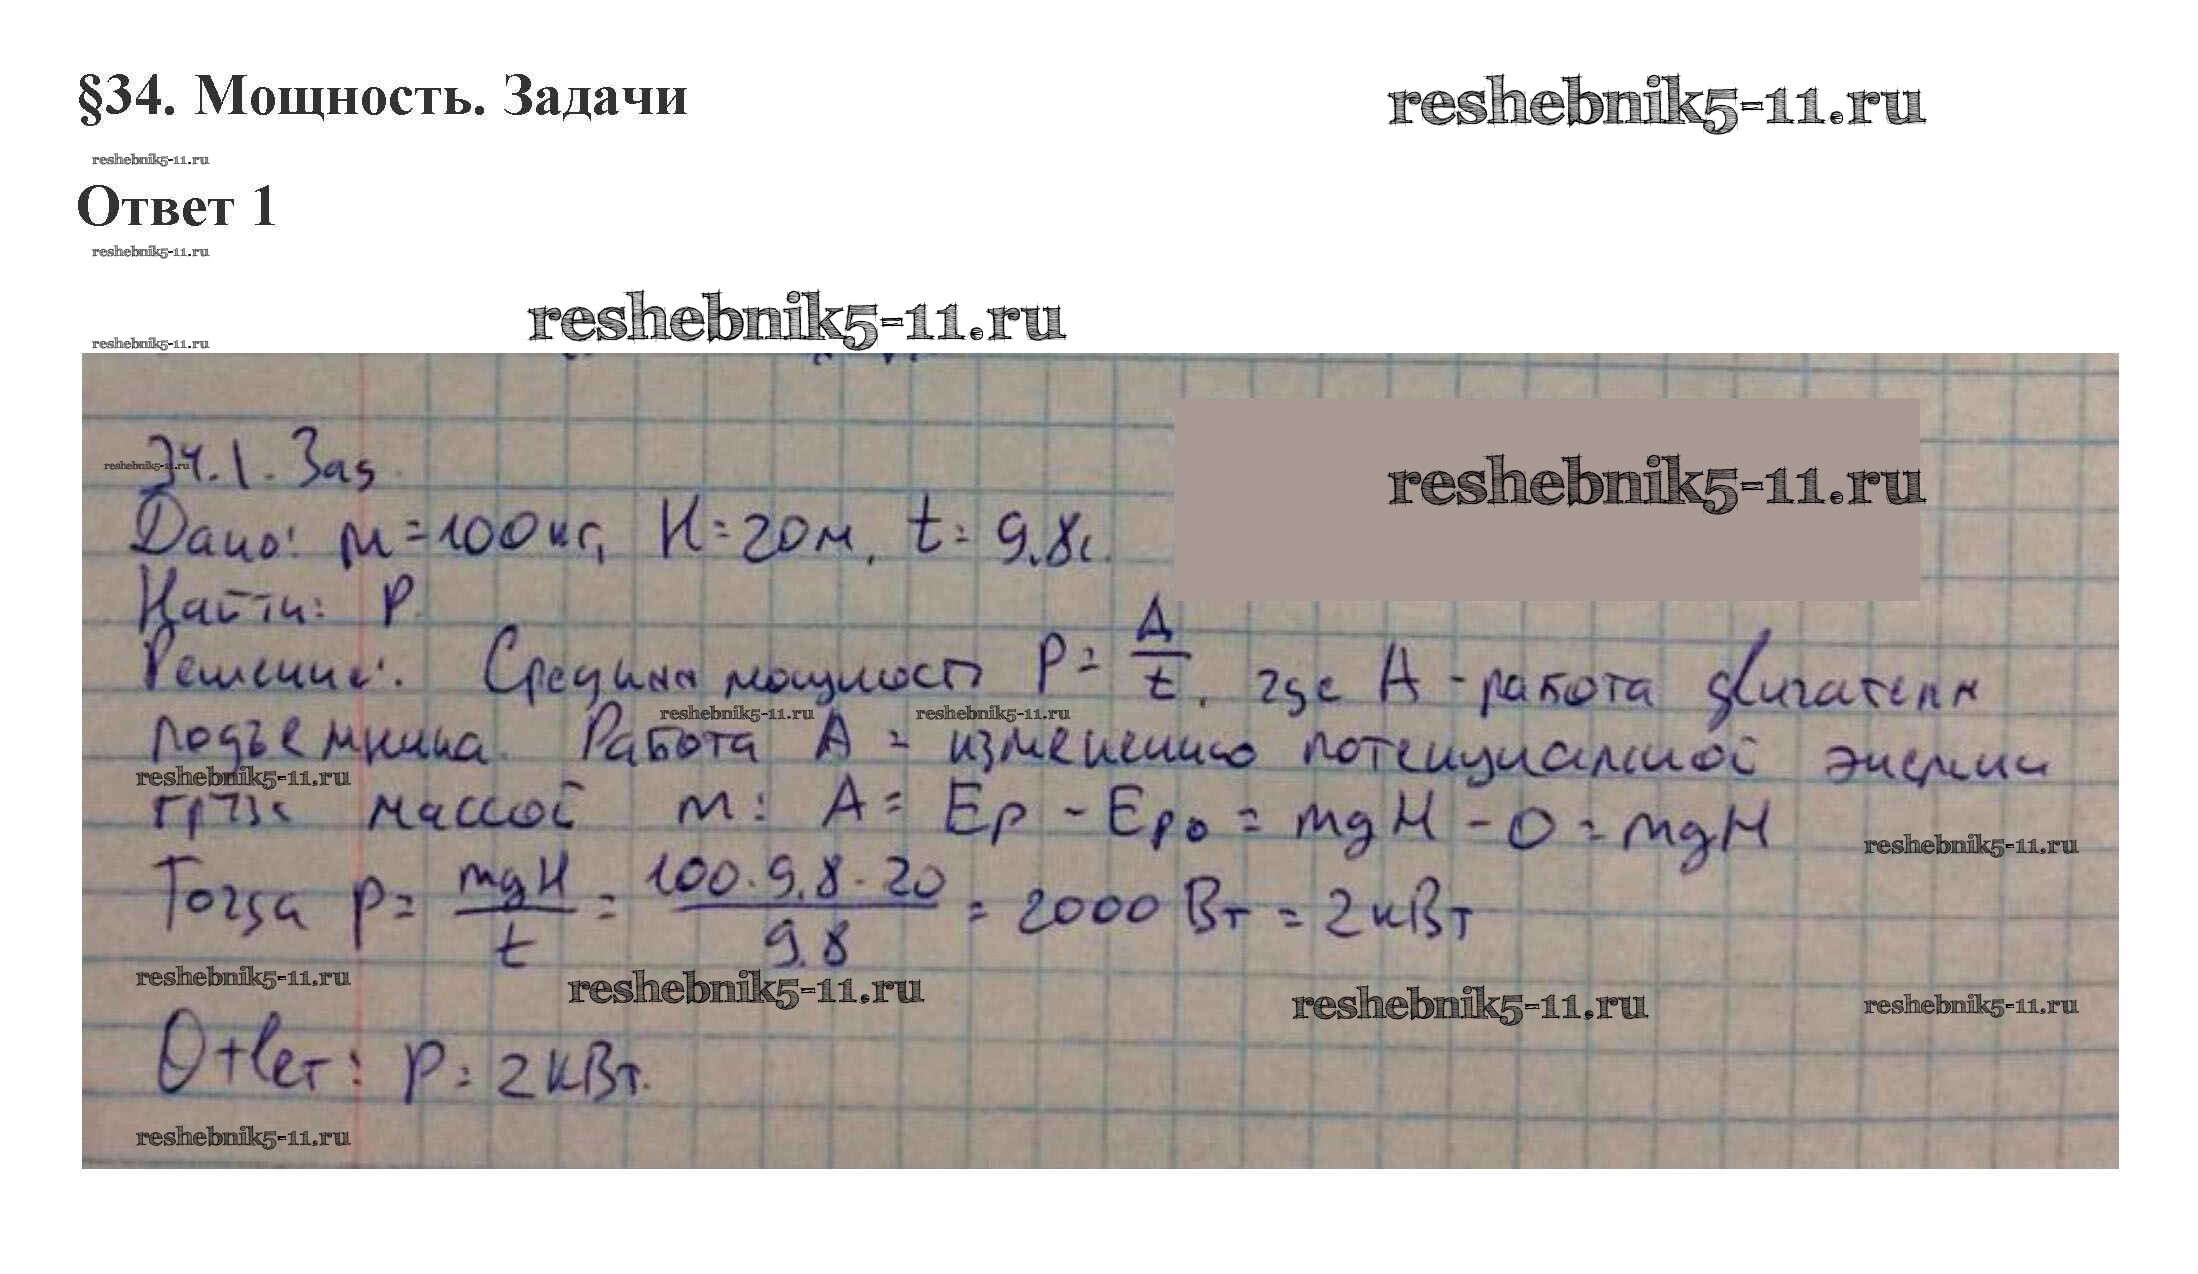 §34. Мощность. Задачи
reshebnik5-11.ru
reshebnik5-11.ru
Ответ 1
reshebnik5-11.ru
reshebnik5-11.ru
reshebnik5-11.ru
34.1. Зад.
reshebnik5-11.ru
reshebnik5-11.ru
Дано: m = 100 кг, H = 20 м, t = 9.8 с.
Найти: P.
Решение: Средняя мощность P = A/t, где A - работа двигателя
reshebnik5-11.ru reshebnik5-11.ru
подъемника. Работа A = изменению потенциальной энергии
reshebnik5-11.ru
груза массой m: A = Ep - Ep0 = mgH - 0 = mgH
reshebnik5-11.ru
Тогда P = mgH/t = 100·9.8·20/9.8 = 2000 Вт = 2 кВт
reshebnik5-11.ru reshebnik5-11.ru reshebnik5-11.ru reshebnik5-11.ru
Ответ: P = 2 кВт.
reshebnik5-11.ru